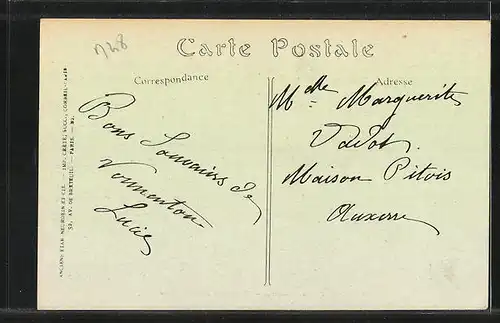 1928
Carte Postale
Correspondance
Adresse
Bons Souvenirs de
Vermenton
Lucie
Mdlle Marguerite
Vadot
Maison Pitois
Auxerre
ANCIENS ETAB. NEURDEIN ET CIE. — IMP. CRÉTÉ, SUCC., CORBEIL-PARIS
52, AV. DE BRETEUIL. — PARIS.